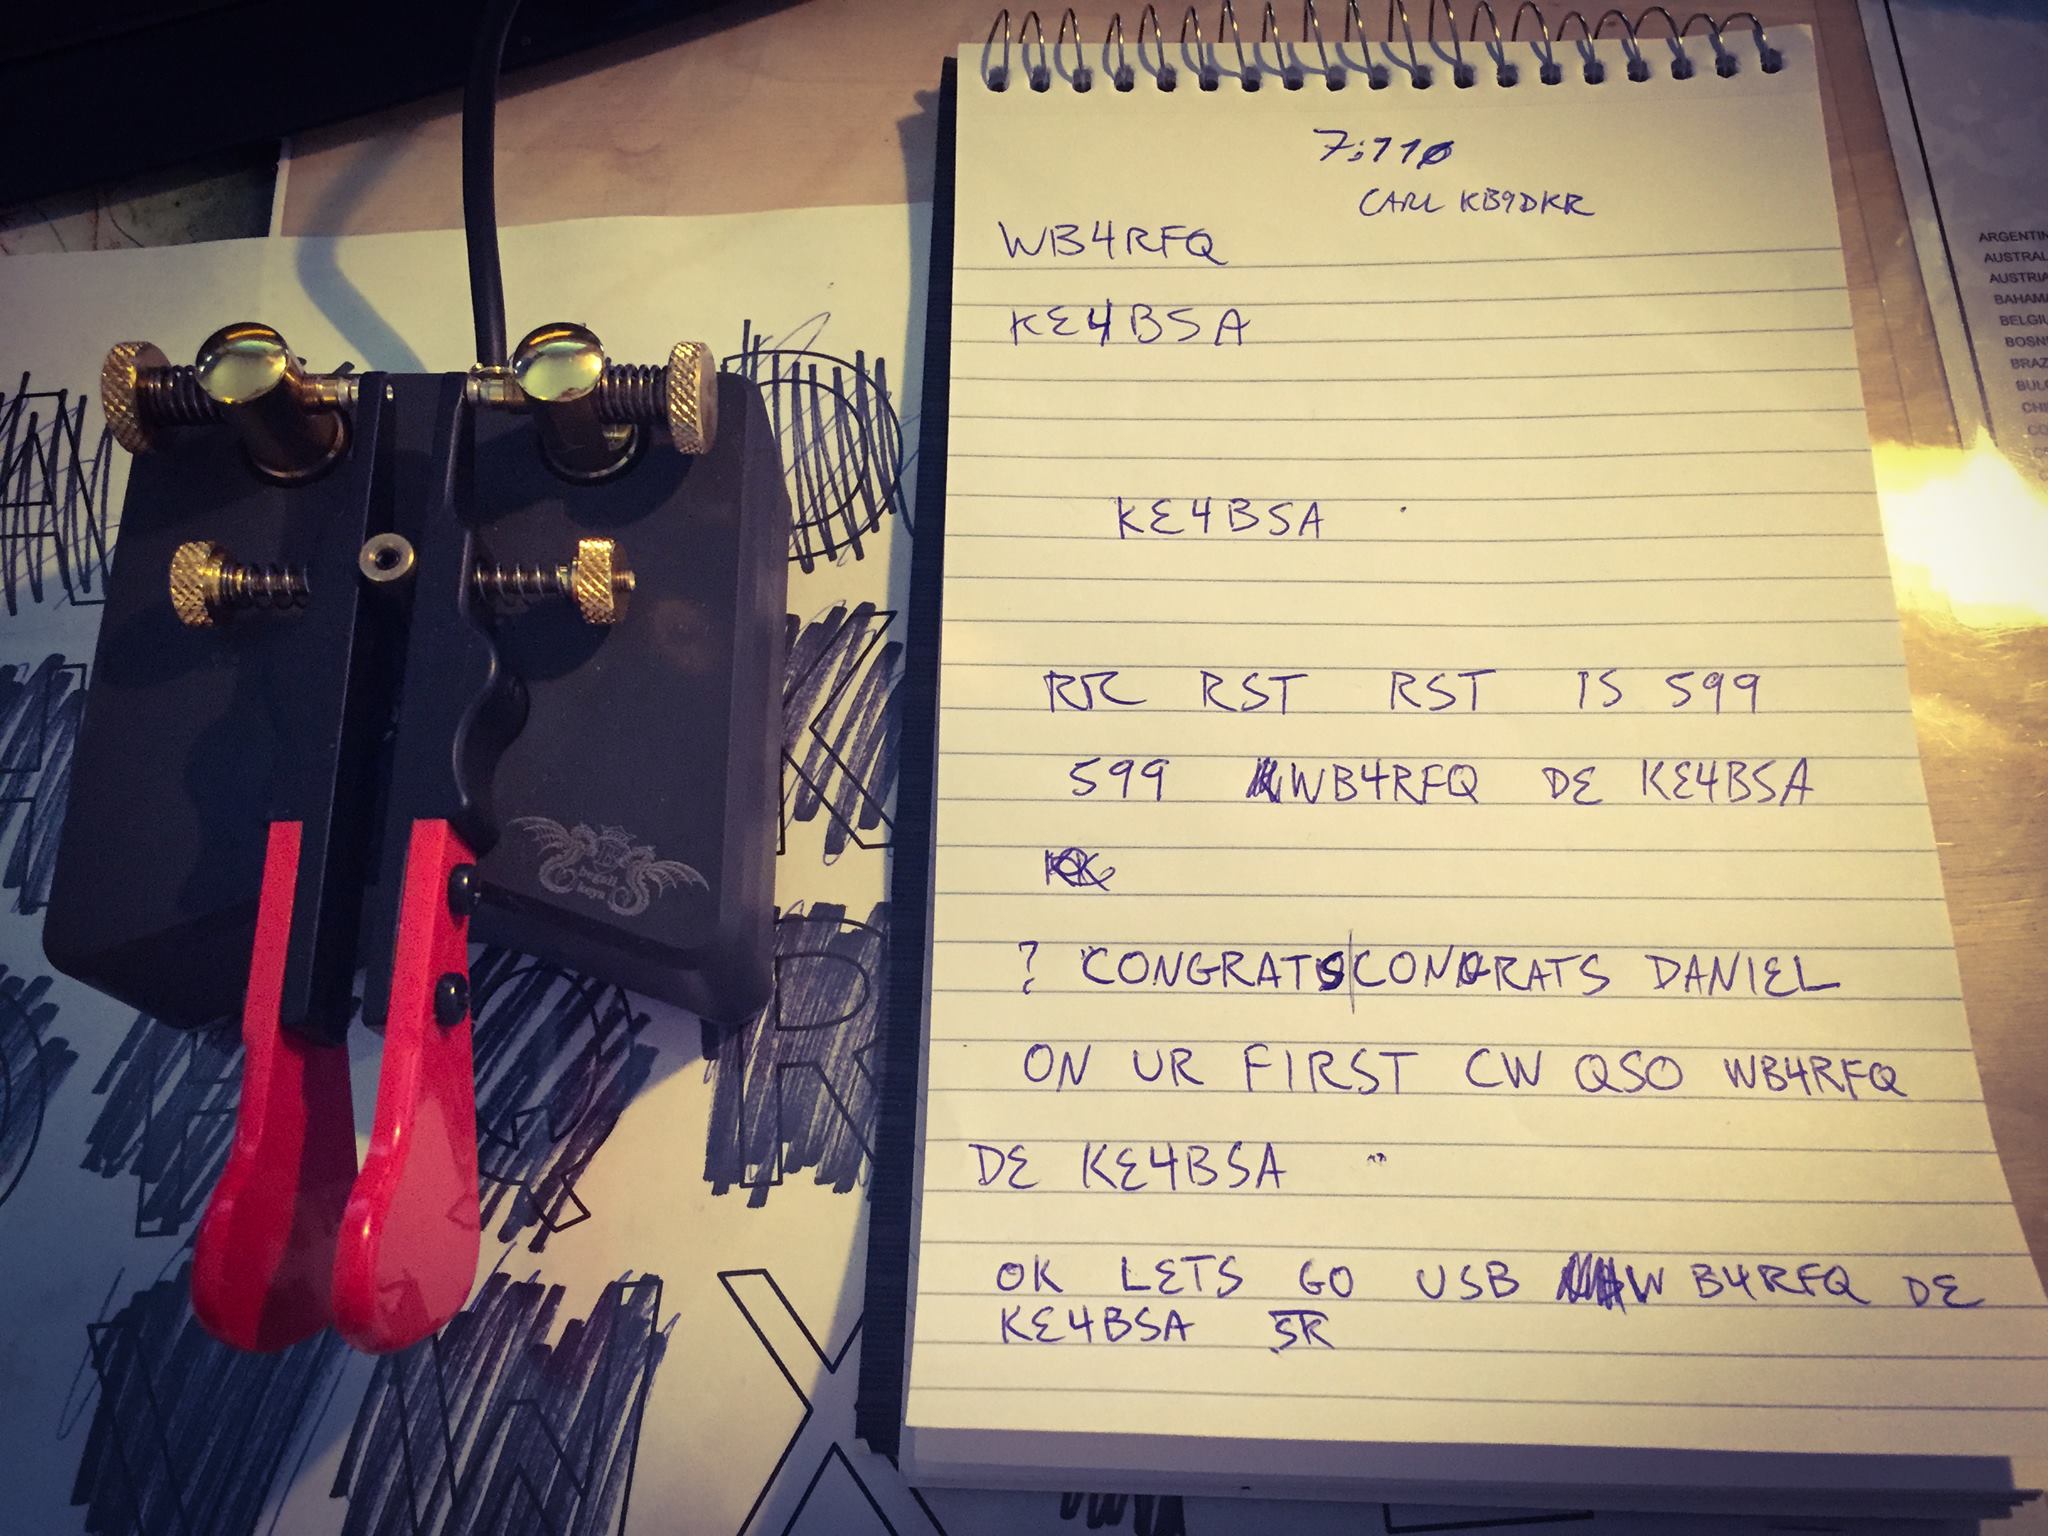 7:110
CARL KB9DKR
WB4RFQ
KE4BSA
KE4BSA
RR RST RST IS 599
599 WB4RFQ DE KE4BSA
? CONGRATS CONGRATS DANIEL
ON UR FIRST CW QSO WB4RFQ
DE KE4BSA "
OK LETS GO USB W B4RFQ DE
KE4BSA SR
begali
keys
K
R
W
X
ARGENTIN
AUSTRAL
AUSTRIA
BAHAMA
BELGIU
BOSN
BRAZ
BUL
CHI
CO